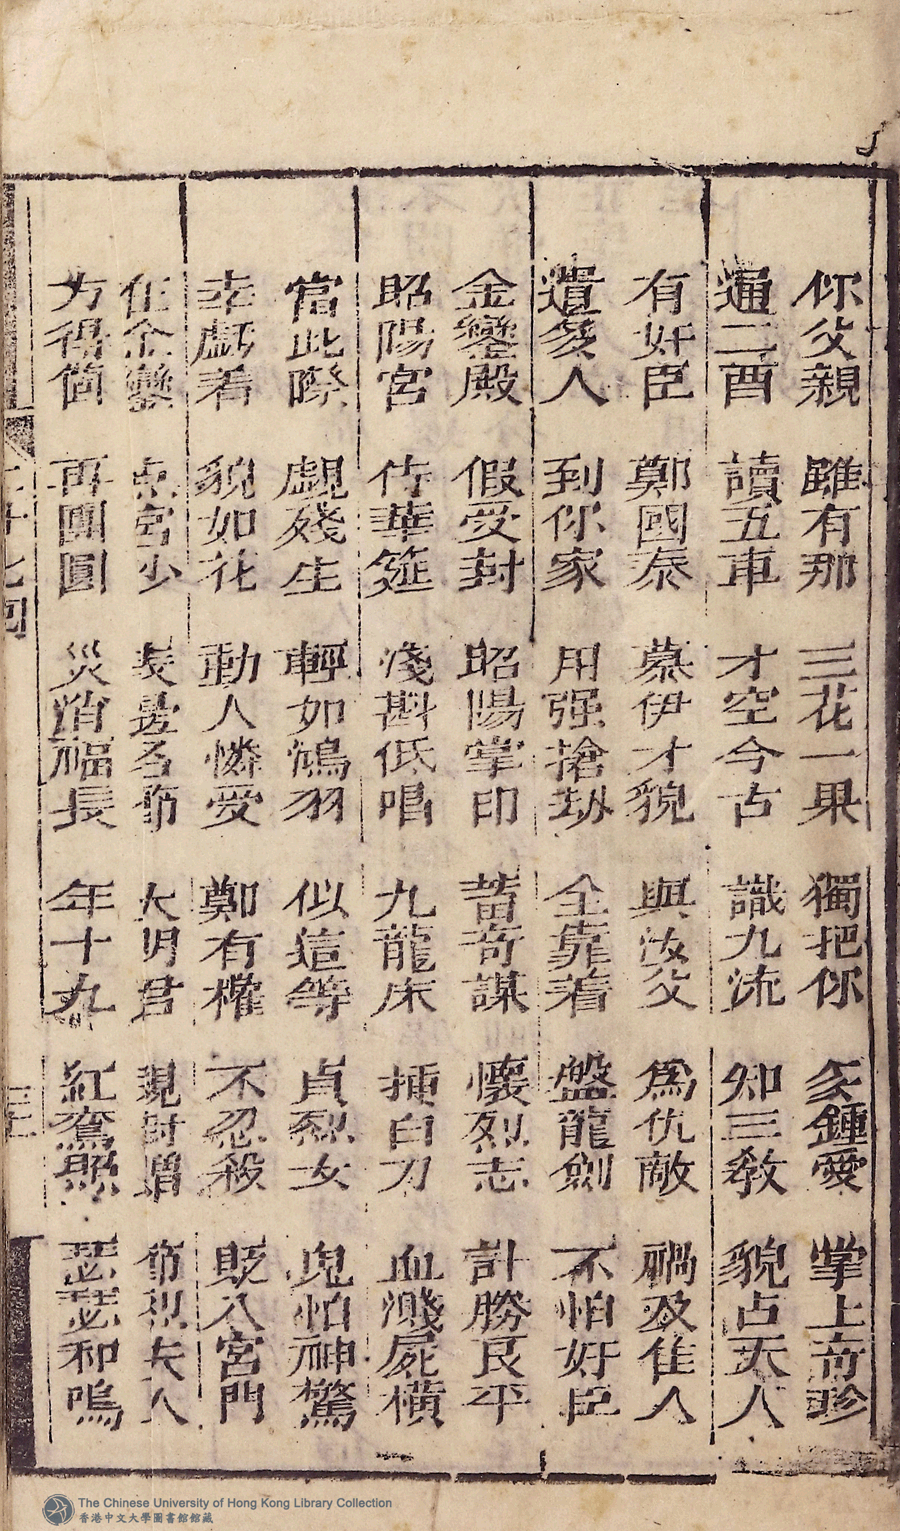 你父親 雖有那 三花一果 獨把你 多鍾愛 掌上奇珍
通二酉 讀五車 才空今古 識九流 知三教 貌占天人
有奸臣 鄭國泰 慕伊才貌 與汝父 為仇敵 禍及佳人
遣多人 到你家 用强搶劫 全靠着 盤龍劍 不怕奸臣
金鑾殿 假受封 昭陽掌印 蓄奇謀 懷烈志 計勝良平
昭陽宮 侍華筵 淺斟低唱 九龍床 揰白刀 血濺屍橫
當此際 覷殘生 輕如鴻羽 似這等 貞烈女 鬼怕神驚
幸虧着 貌如花 動人憐愛 鄭有權 不忍殺 貶入宮門
在金鑾 宮少 名節 大明君 親封贈 節烈夫人
方得個 再團圓 災消福長 年十九 紅鸞照 瑟瑟和鳴
二十七回
三
The Chinese University of Hong Kong Library Collection
香港中文大學圖書館館藏